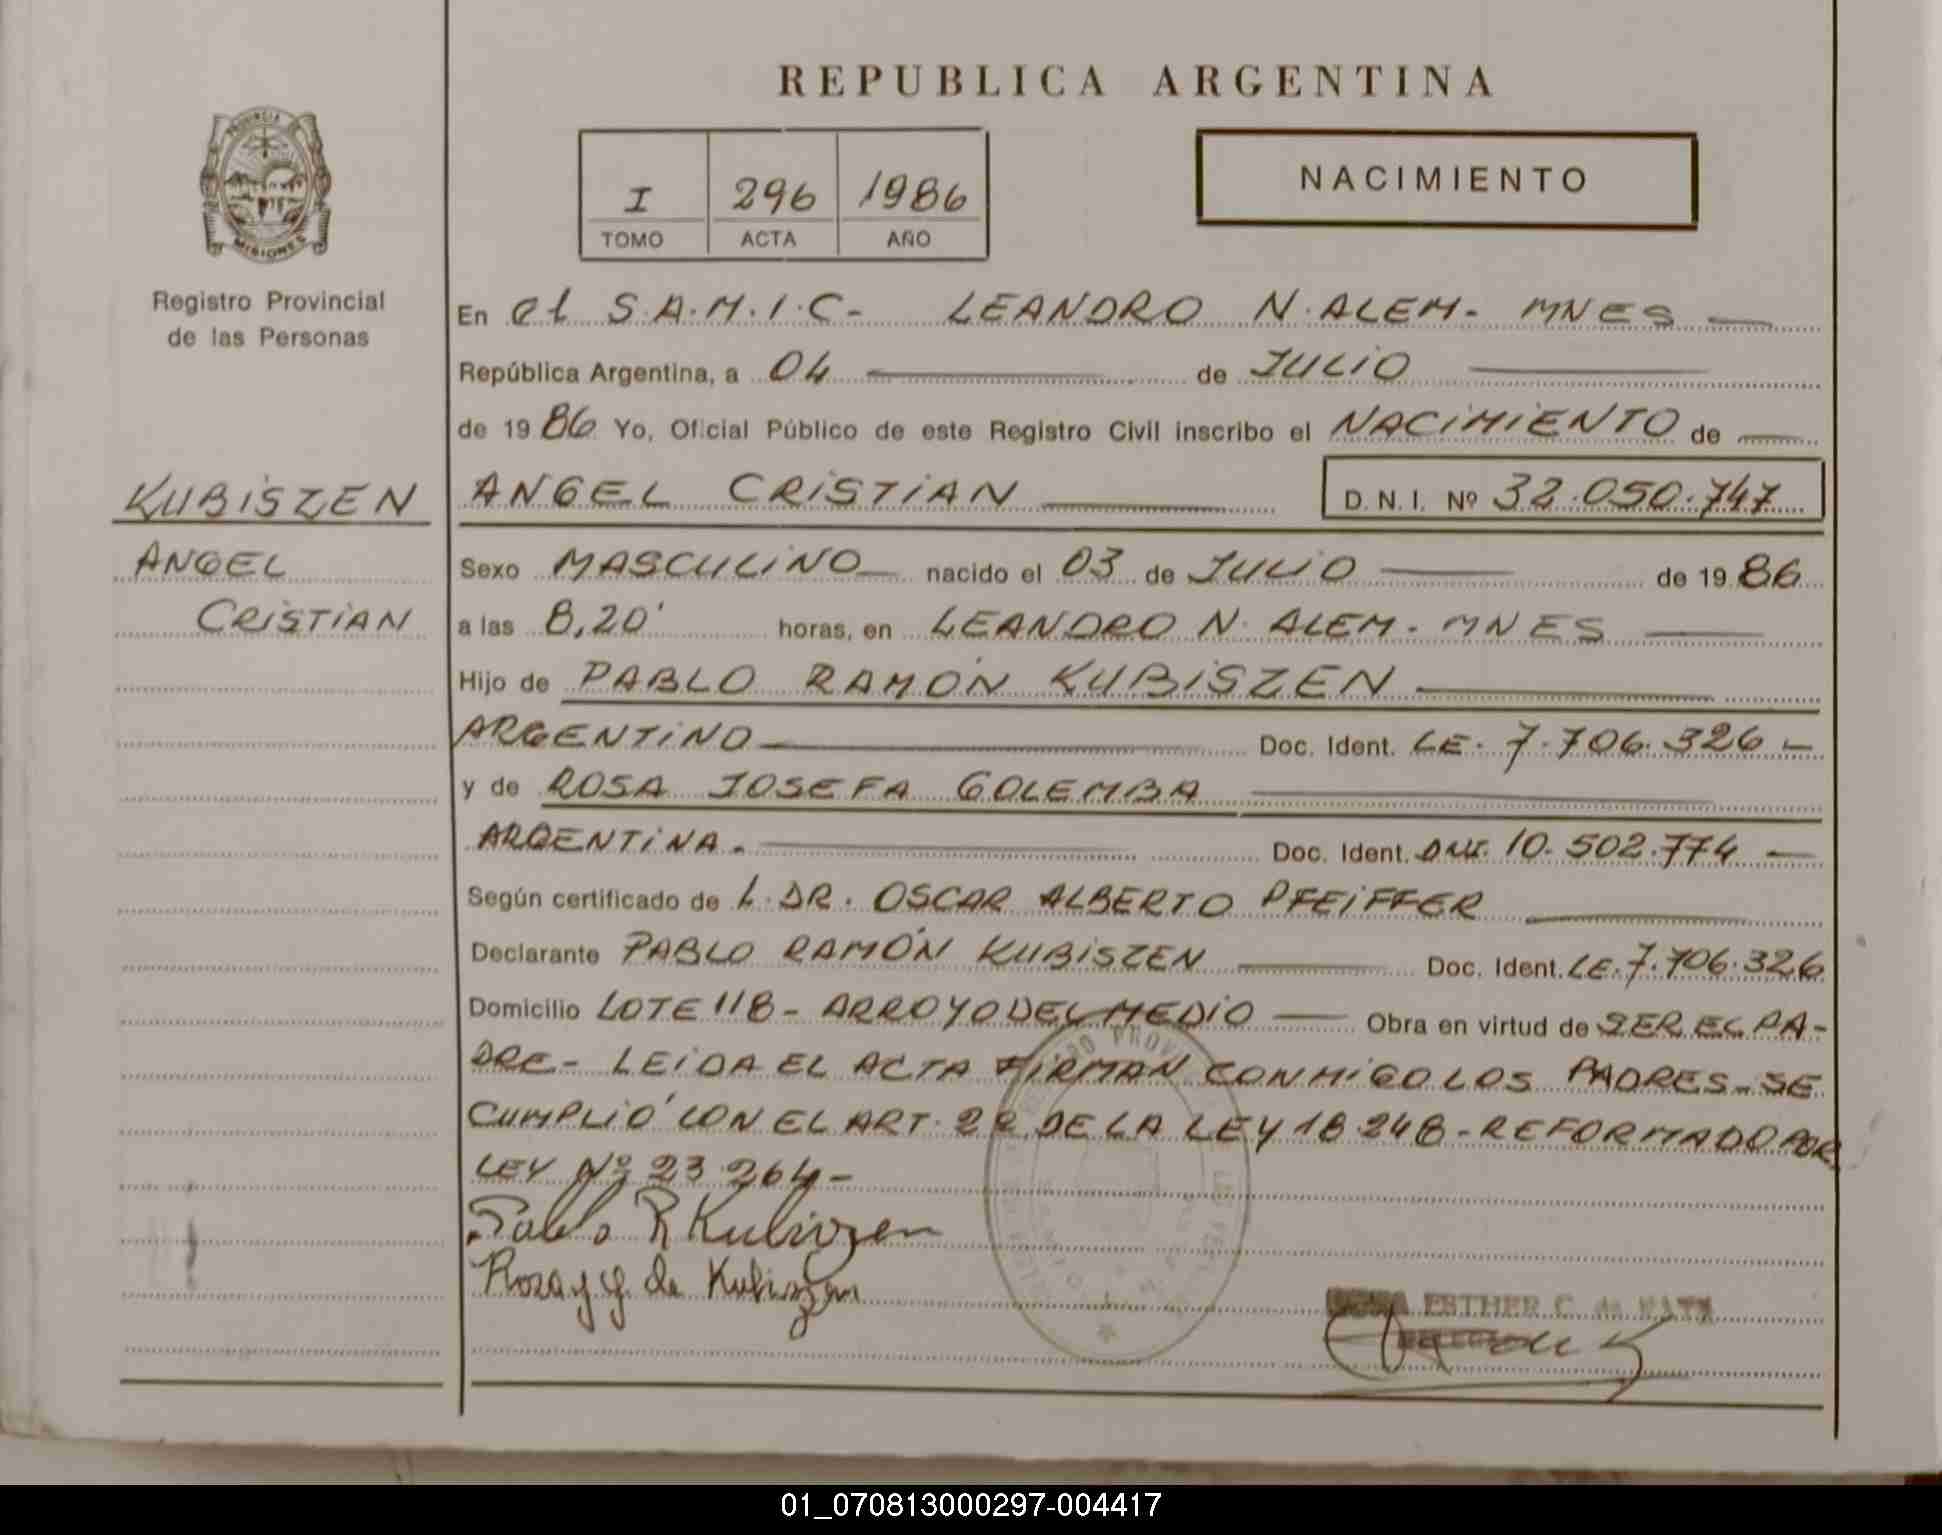 REPUBLICA ARGENTINA
PROVINCIA DE
MISIONES
Registro Provincial
de las Personas
I 296 1986
TOMO ACTA AÑO
NACIMIENTO
En el S.A.M.I.C- LEANDRO N. ALEM- MNES
República Argentina, a 04 de JULIO
de 1986 Yo, Oficial Público de este Registro Civil inscribo el NACIMIENTO de
KUBISZEN
ANGEL
CRISTIAN
ANGEL CRISTIAN D. N. I. Nº 32.050.747
Sexo MASCULINO nacido el 03 de JULIO de 1986
a las 8,20' horas, en LEANDRO N. ALEM- MNES
Hijo de PABLO RAMÓN KUBISZEN
ARGENTINO Doc. Ident. LE. 7.706.326-
y de ROSA JOSEFA GOLEMBA
ARGENTINA. Doc. Ident. DNI. 10.502.774
Según certificado de L. DR. OSCAR ALBERTO PFEIFFER
Declarante PABLO RAMÓN KUBISZEN Doc. Ident. LE. 7.706.326
Domicilio LOTE 118- ARROYO DEL MEDIO Obra en virtud de SER EL PA-
DRE- LEIDA EL ACTA FIRMAN CONMIGO LOS PADRES- SE
CUMPLIÓ CON EL ART. 2º DE LA LEY 18.248- REFORMADO POR
LEY Nº 23.264-
Pablo R Kubiszen
Rosa de Kubiszen
ESTHER C. de
01_070813000297-004417